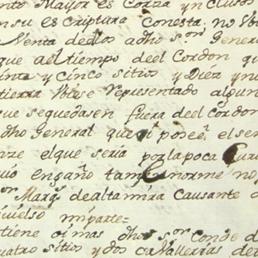 ento Mayor es Corza y no
su escriptura Conesta. no Vb
Venta de dlos adho Sor. Genera
que al tiempo de el Cordon qu
inta y cinco sitios y Diez y nu
tierra Vbiese Representado algun
que se quedasen fuera de el cordon
dho General que posee. el sen
el que seria por la poca
engaño tam enorme no
or Marqs. de altamira Causante d
miparte=
tiene oi mas dho sor Conde d
uatro sitios y dos Cavallerias de